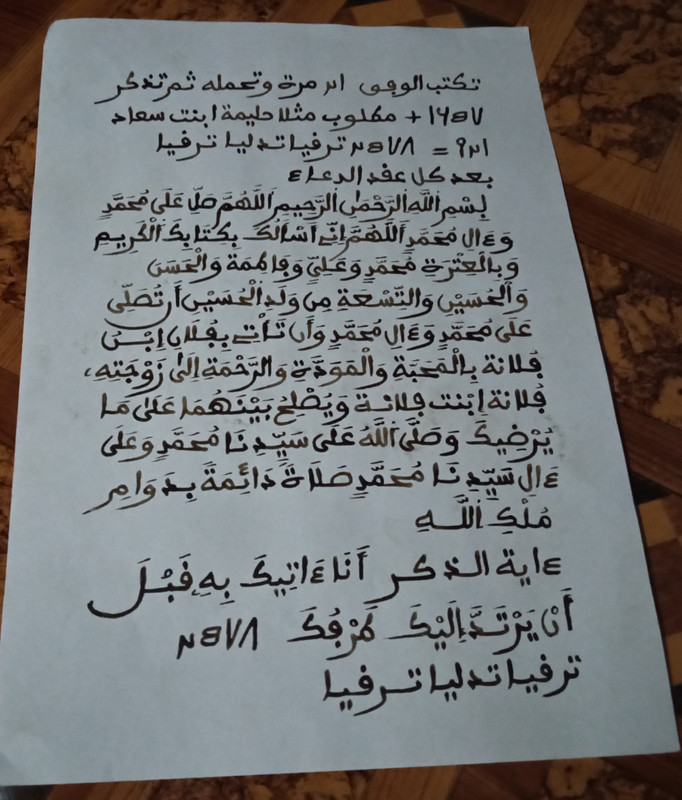 تكتب الوفق مرة وتحمله ثم تذكر
+ مطلوب مثلا حليمة ابنت سعاد
= ترفيا تدليا ترفيا
بعد كل عقد الدعاء
بِسْمِ اللَّهِ الرَّحْمَٰنِ الرَّحِيمِ اَللَّهُمَّ صَلِّ عَلَى مُحَمَّدٍ
وَءَالِ مُحَمَّدٍ اَللَّهُمَّ إِنِّي أَسْأَلُكَ بِكِتَابِكَ الْكَرِيمِ
وَبِالْعِتْرَةِ مُحَمَّدٍ وَعَلِيٍّ وَفَاطِمَةَ وَالْحَسَنِ
وَالْحُسَيْنِ وَالتِّسْعَةِ مِن وَلَدِ الْحُسَيْنِ أَن تُصَلِّي
عَلَى مُحَمَّدٍ وَءَالِ مُحَمَّدٍ وَأَن تَأْتِي بِفُلَان اِبْنُ
فُلَانة بِالْمَحَبَّةِ وَالْمَوَدَّةِ وَالرَّحْمَةِ إِلَى زَوْجَتِهِ،
فُلَانة اِبْنت فلانة وَيُصْلِحُ بَيْنَهُمَا عَلَى مَا
يُرْضِيكَ وَصَلَّى اللَّهُ عَلَى سَيِّدِنَا مُحَمَّدٍ وَعَلَى
ءَالِ سَيِّدِنَا مُحَمَّدٍ صَلَاةً دَائِمَةً بِدَوَامِ
مُلْكِ اللَّهِ
ءاية الذكر أَنَا ءَاتِيكَ بِهِ قَبْلَ
أَنْ يَرْتَدَّ إِلَيْكَ طَرْفُكَ
ترفيا تدليا ترفيا